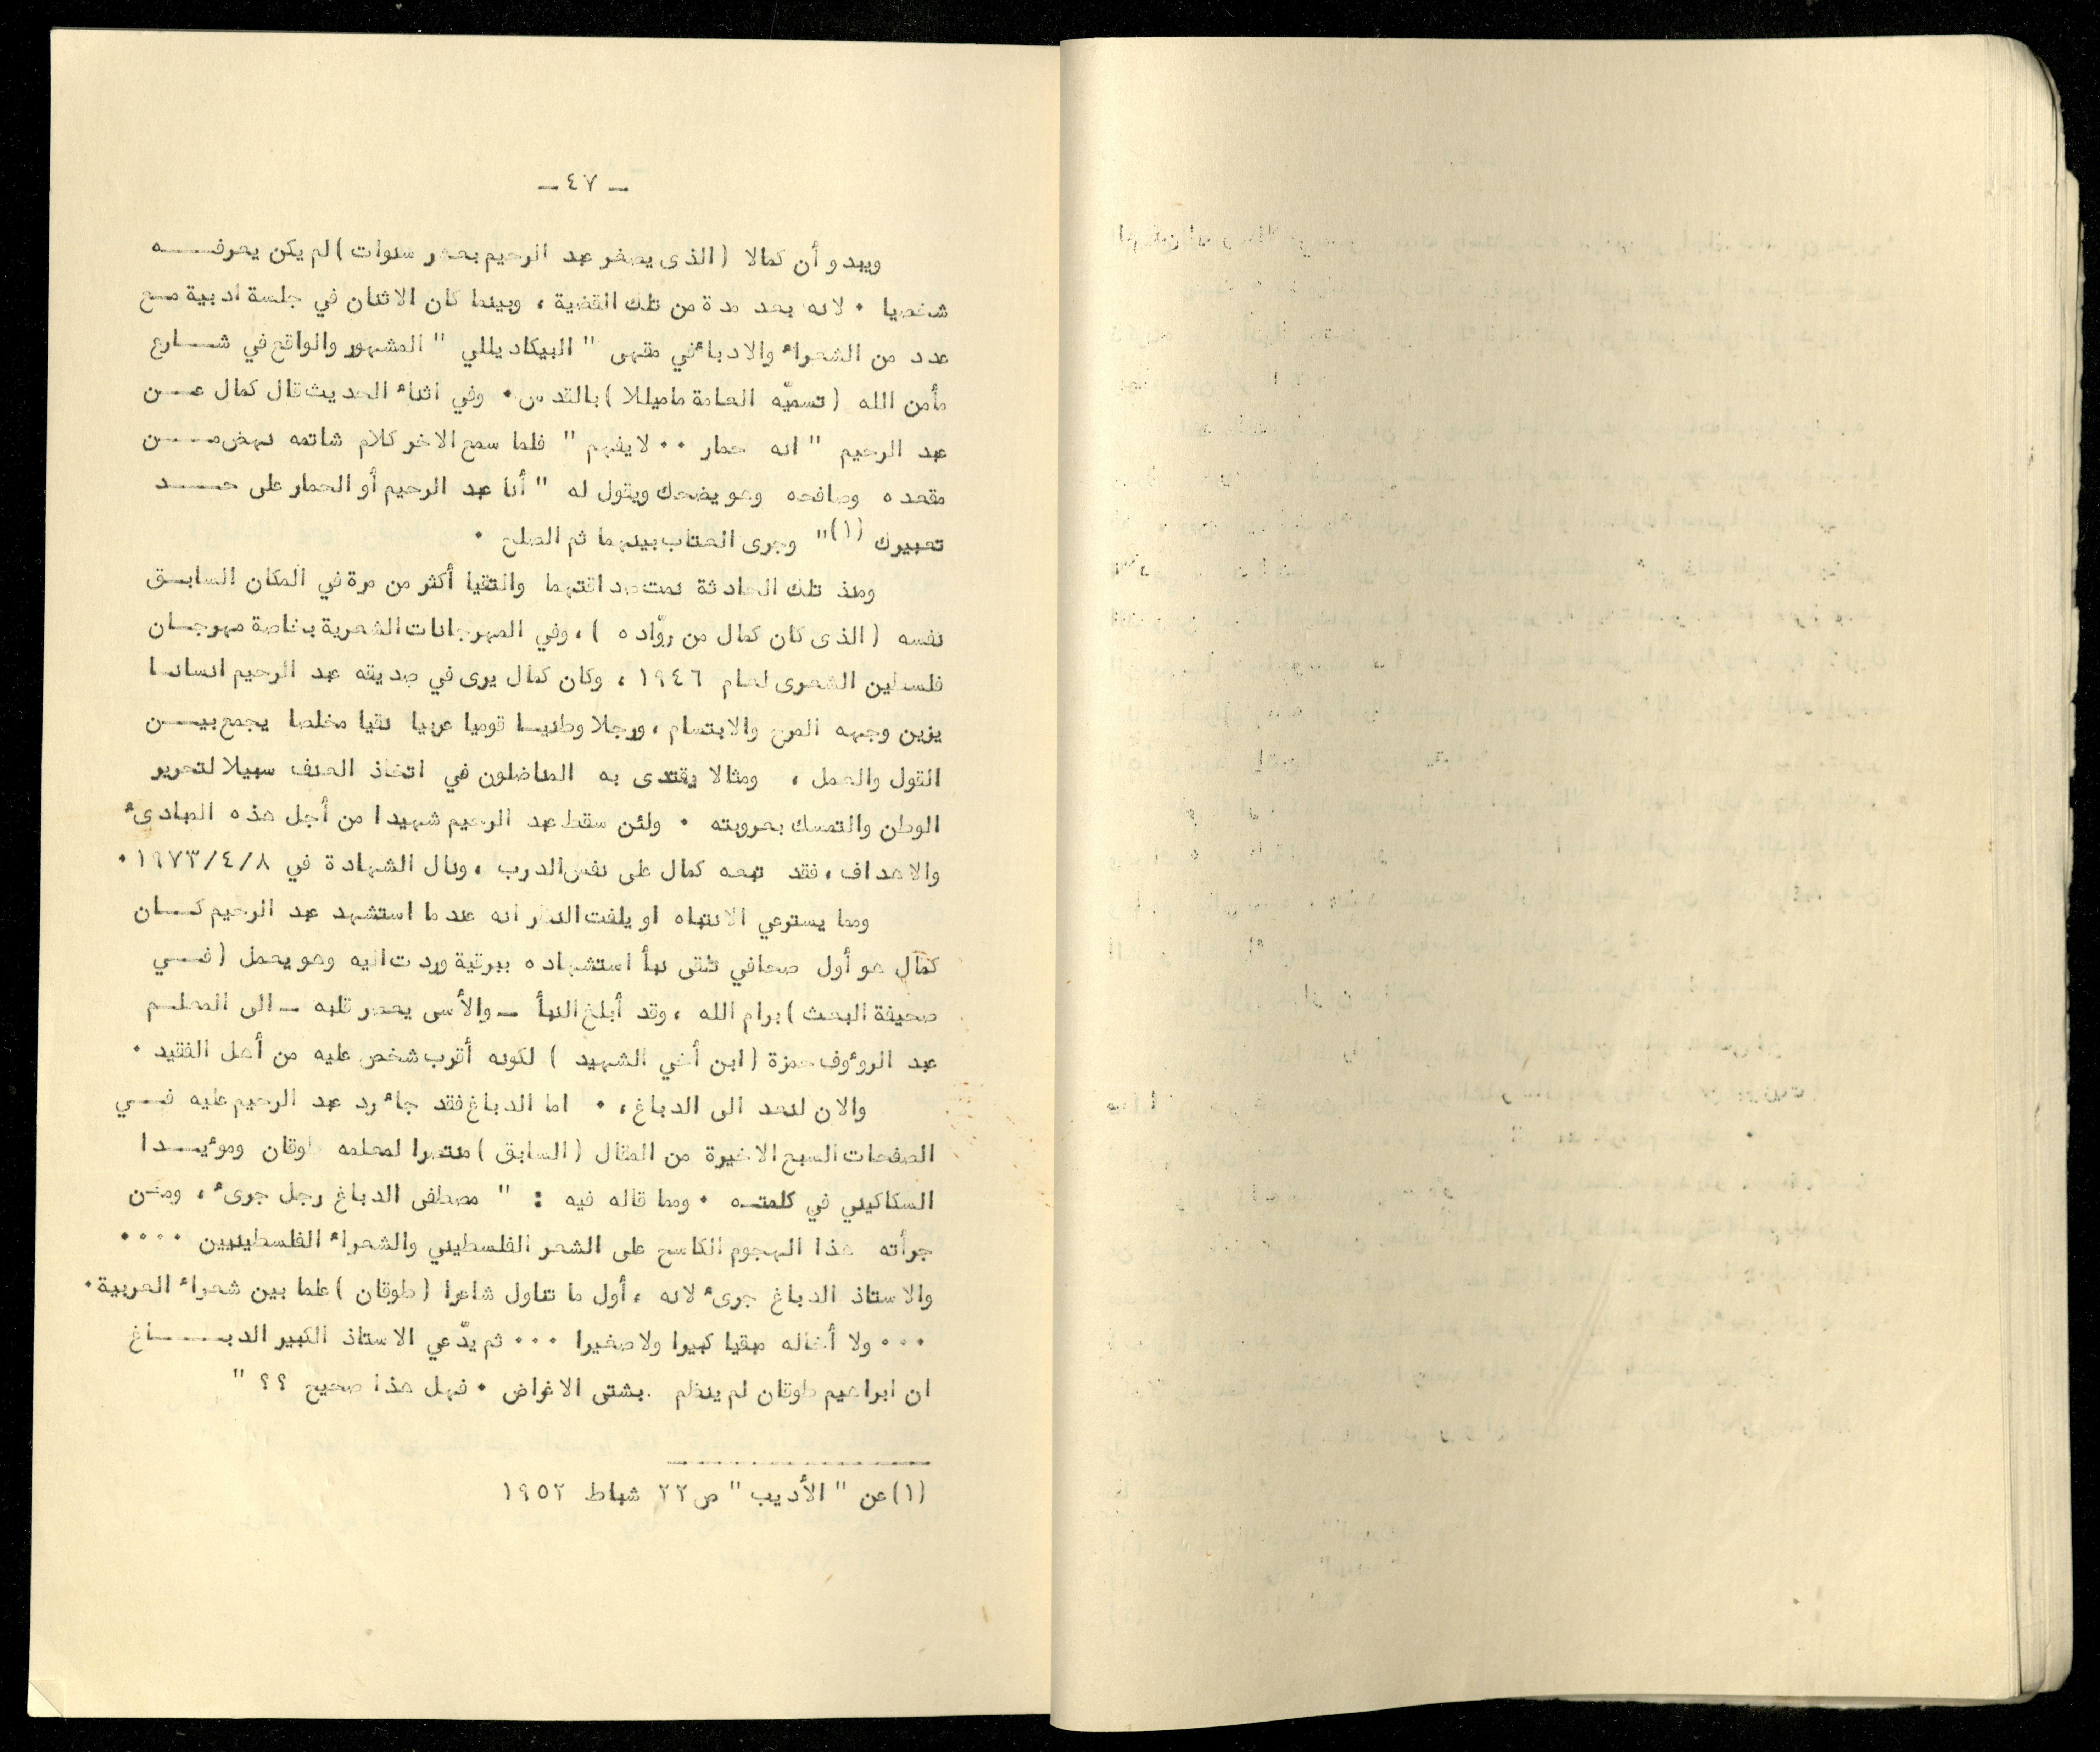 ــ ٤٧ ــ
ويبدو أن كمالا (الذى يصغر عبد الرحيم بعشر سنوات) لم يكن يعرفـــه
شخصيا ٠ لانه بعد مدة من تلك القضية ، وبينما كان الاثنان في جلسة ادبية مـع
عدد من الشعراء والادباء في مقهى " البيكاديللي " المشهور والواقع في شـــارع
مأمن الله (تسميّه العامة ماميللا) بالقدس ٠ وفي اثناء الحديث قال كمال عـــن
عبد الرحيم " انه حمار ٠٠ لا يفهم " فلما سمع الاخر كلام شاتمه نهض مـــن
مقعده وصافحه وهو يضحك ويقول له " أنا عبد الرحيم أو الحمار على حـــد
تعبيرك (١)" وجرى العتاب بينهما ثم الصلح ٠
ومنذ تلك الحادثة نمت صداقتهما والتقيا أكثر من مرة في المكان السابـق
نفسه (الذى كان كمال من روّاده) ، وفي المهرجانات الشعرية بخاصة مهرجـان
فلسطين الشعرى لعام ١٩٤٦ ، وكان كمال يرى في صديقه عبد الرحيم انسانـا
يزين وجهه المرح والابتسام ، ورجلا وطنيـا قوميا عربيا نقيا مخلصا يجمع بيــن
القول والعمل ، ومثالا يقتدى به المناضلون في اتخاذ العنف سبيلا لتحرير
الوطن والتمسك بعروبته ٠ ولئن سقط عبد الرحيم شهيدا من أجل هذه المبادىء
والاهداف ، فقد تبعه كمال على نفس الدرب ، ونال الشهادة في ١٩٧٣/٤/٨ ٠
ومما يسترعي الانتباه او يلفت النظر انه عندما استشهد عبد الرحيم كـــان
كمال هو أول صحافي تلقى نبأ استشهاده ببرقية وردت اليه وهو يعمل (فـــي
صحيفة البعث) برام الله ، وقد أبلغ النبأ ــ والأسى يعصر قلبه ــ الى المعلــم
عبد الروءوف حمزة (ابن أخي الشهيد) لكونه أقرب شخص عليه من أهل الفقيد ٠
والان لنعد الى الدباغ ، ٠ اما الدباغ فقد جاء رد عبد الرحيم عليه فـــي
الصفحات السبع الاخيرة من المقال (السابق) منتصرا لمعلمه طوقان وموءيـــدا
السكاكيني في كلمتـه ٠ ومما قاله فيه : " مصطفى الدباغ رجل جرىء ، ومـن
جرأته هذا الهجوم الكاسح على الشعر الفلسطيني والشعراء الفلسطينيين ٠٠٠٠
والاستاذ الدباغ جرىء لانه ، أول ما تناول شاعرا (طوقان) علما بين شعراء العربية ٠
٠٠٠ ولا أخاله مبقيا كبيرا ولا صغيرا ٠٠٠ ثم يدّعي الاستاذ الكبير الدبـــاغ
ان ابراهيم طوقان لم ينظم بشتى الاغراض ٠ فهل هذا صحيح ؟؟ "
(١) عن " الأديب " ص ٢٢ شباط ١٩٥٢